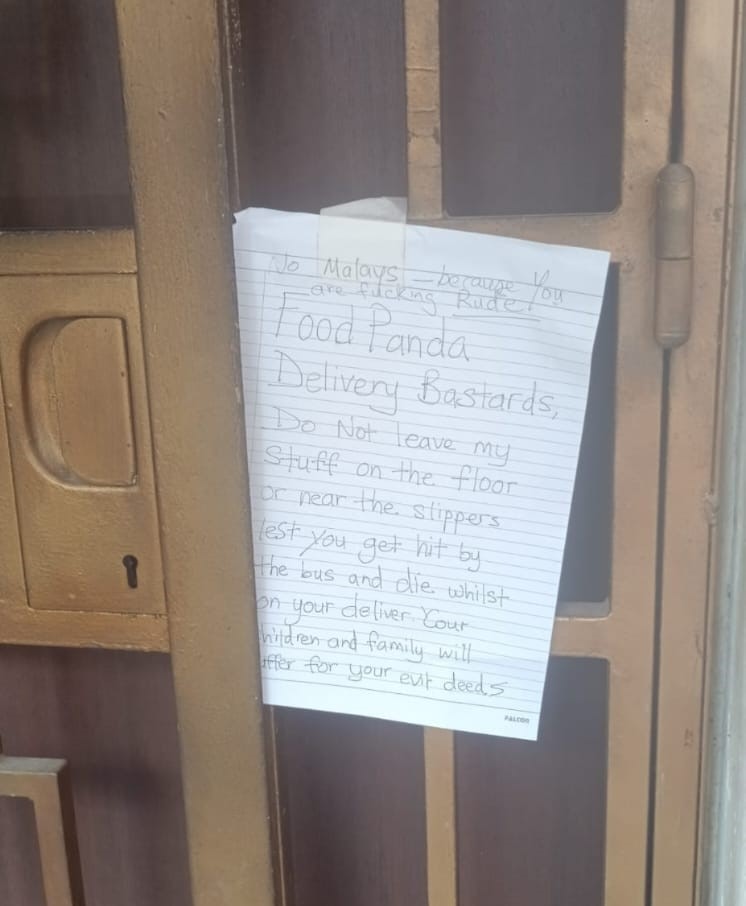 No Malays – because You
are fucking Rude!
Food Panda
Delivery Bastards,
Do Not leave my
Stuff on the floor
or near the slippers
lest you get hit by
the bus and die whilst
on your deliver. Your
hildren and family will
uffer for your evil deeds
FALCON